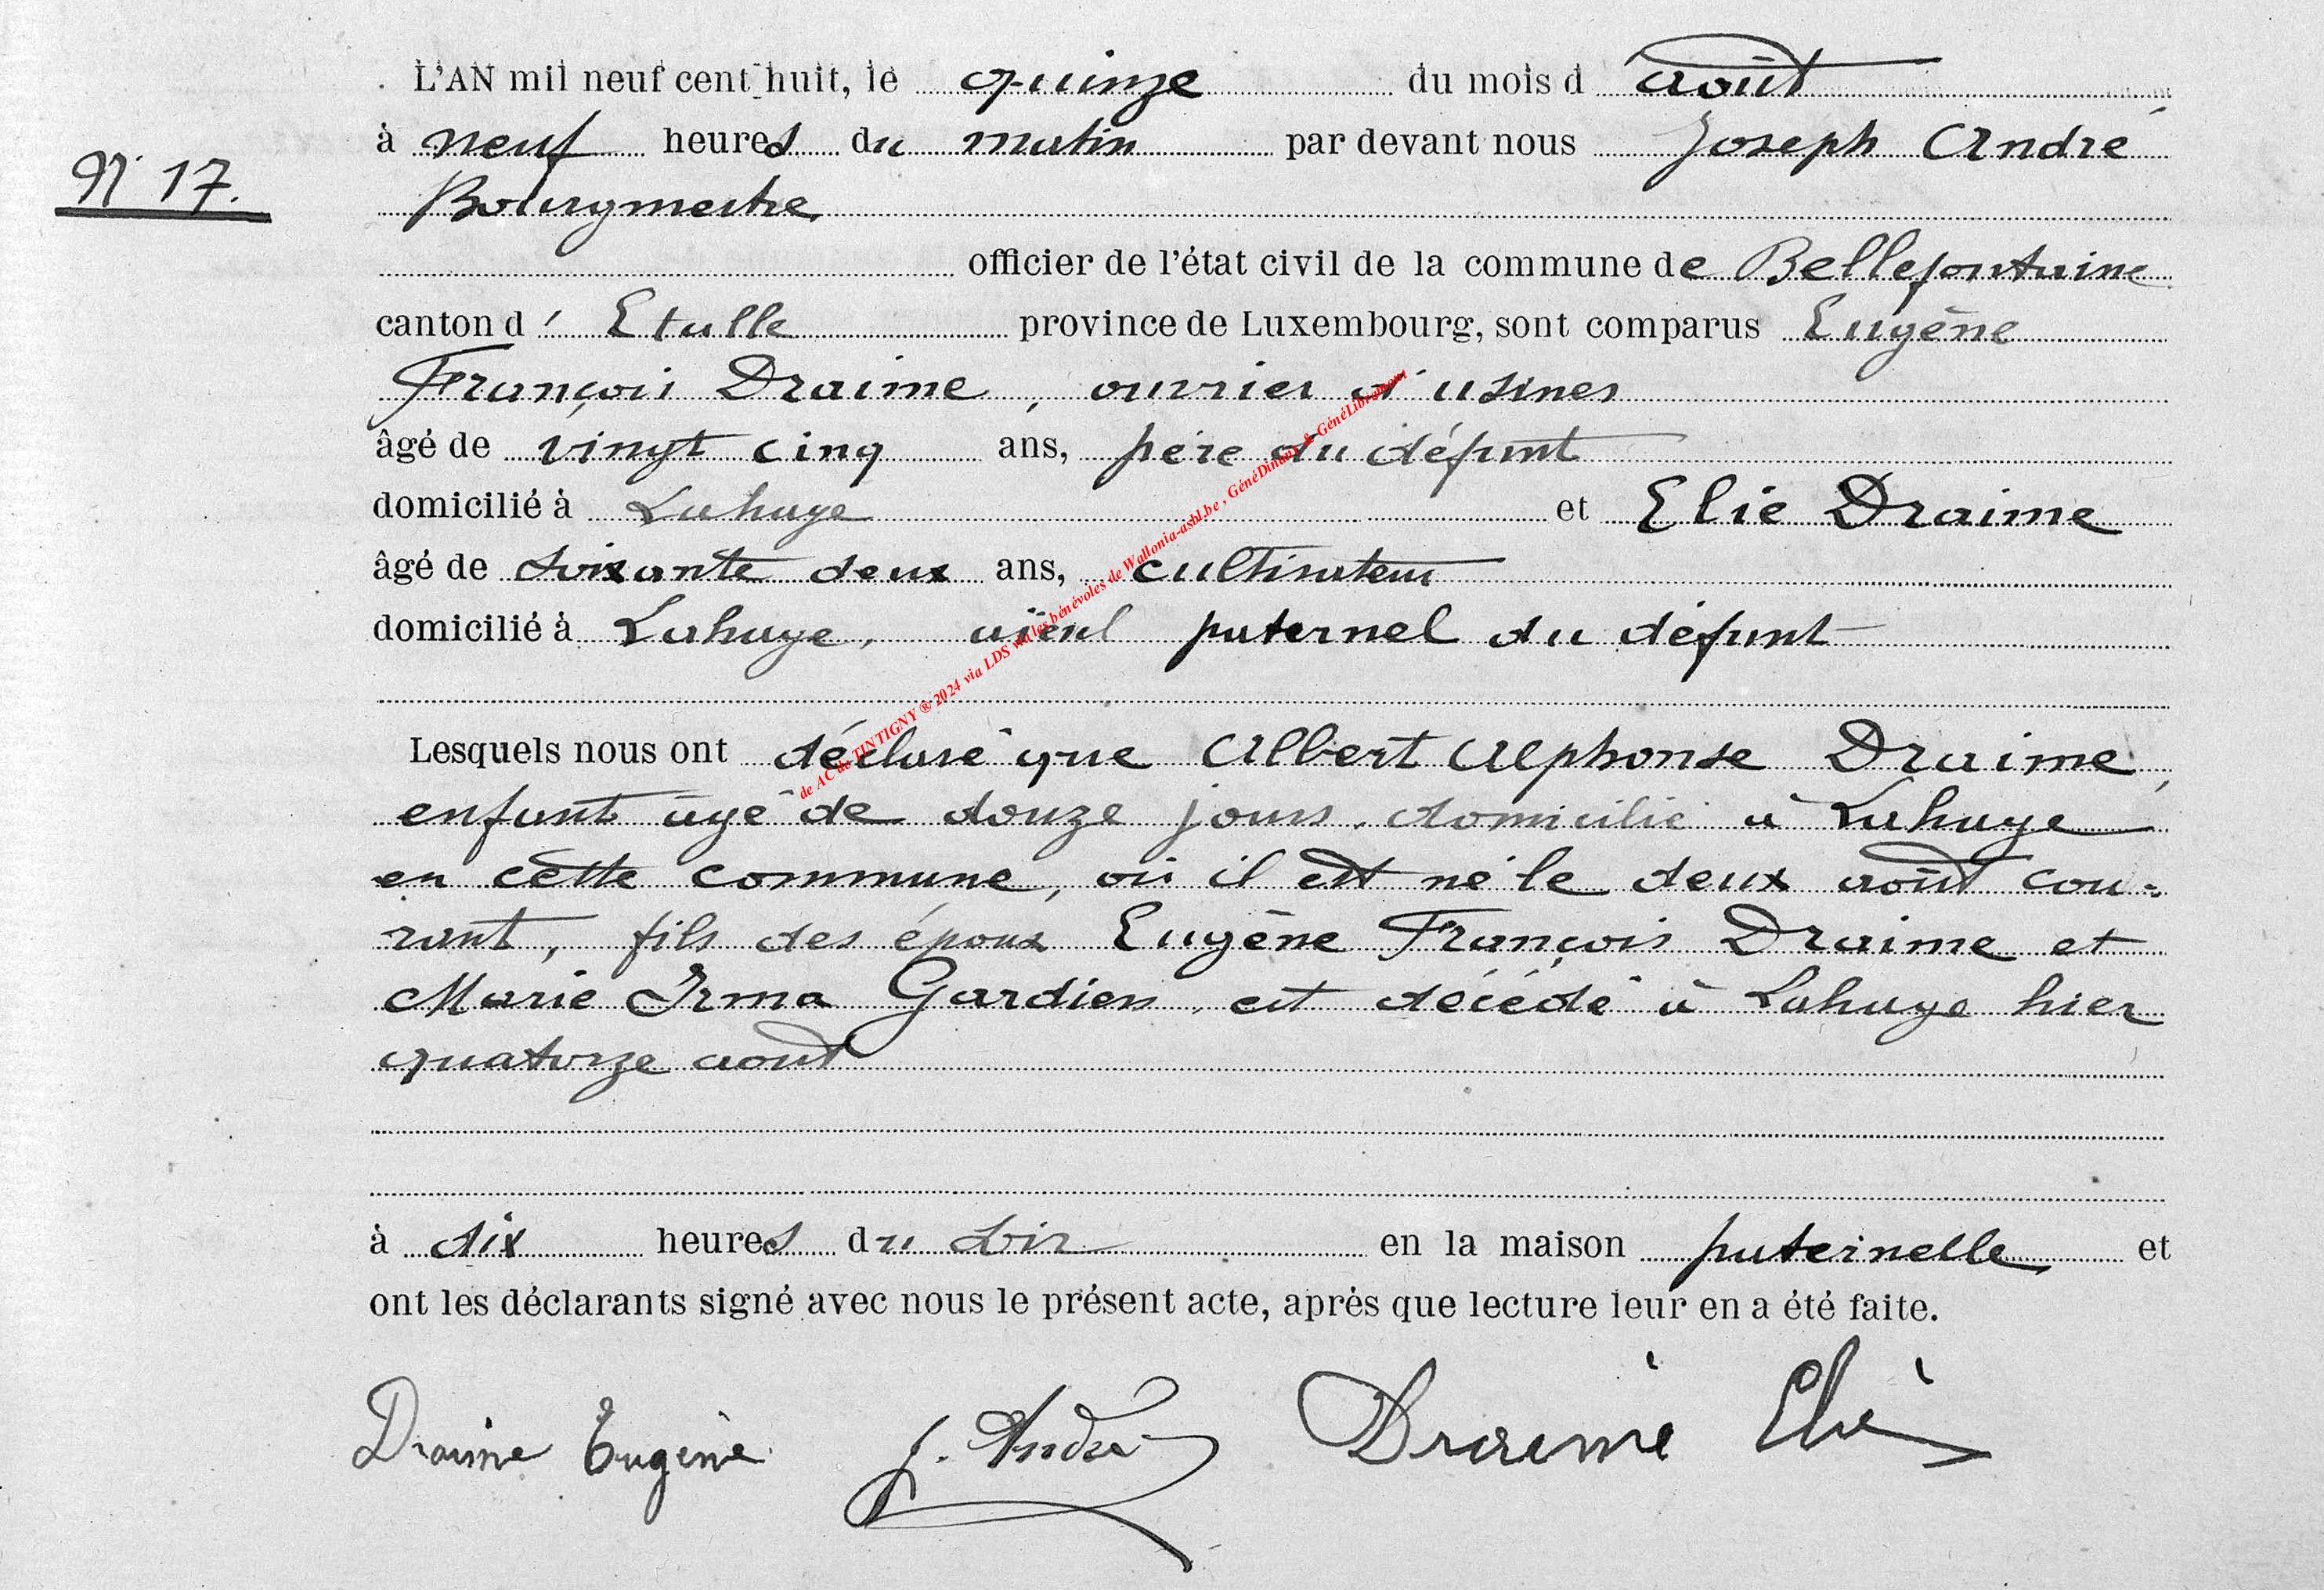 L'AN mil neuf cent huit, le quinze du mois d août
à neuf heures du matin par devant nous Joseph André
N° 17.
Bourgmestre
officier de l'état civil de la commune de Bellefontaine
canton d' Etalle province de Luxembourg, sont comparus Eugène
François Draime, ouvrier d'usines
âgé de vingt cinq ans, père du défunt
domicilié à Lahage et Elie Draime
âgé de soixante deux ans, cultivateur
domicilié à Lahage, aïeul paternel du défunt
Lesquels nous ont déclaré que Albert Alphonse Draime,
enfant âgé de douze jours, domicilié à Lahage
en cette commune, où il est né le deux août cou-
rant, fils des époux Eugène François Draime et
Marie Irma Gardien, est décédé à Lahage hier
quatorze août
à dix heures du soir en la maison paternelle et
ont les déclarants signé avec nous le présent acte, après que lecture leur en a été faite.
Draime Eugène J. André Draime Elie
de AC de TINTIGNY ® 2024 via LDS via les bénévoles de Wallonia-asbl.be, GénéDinant & GénéLibramont